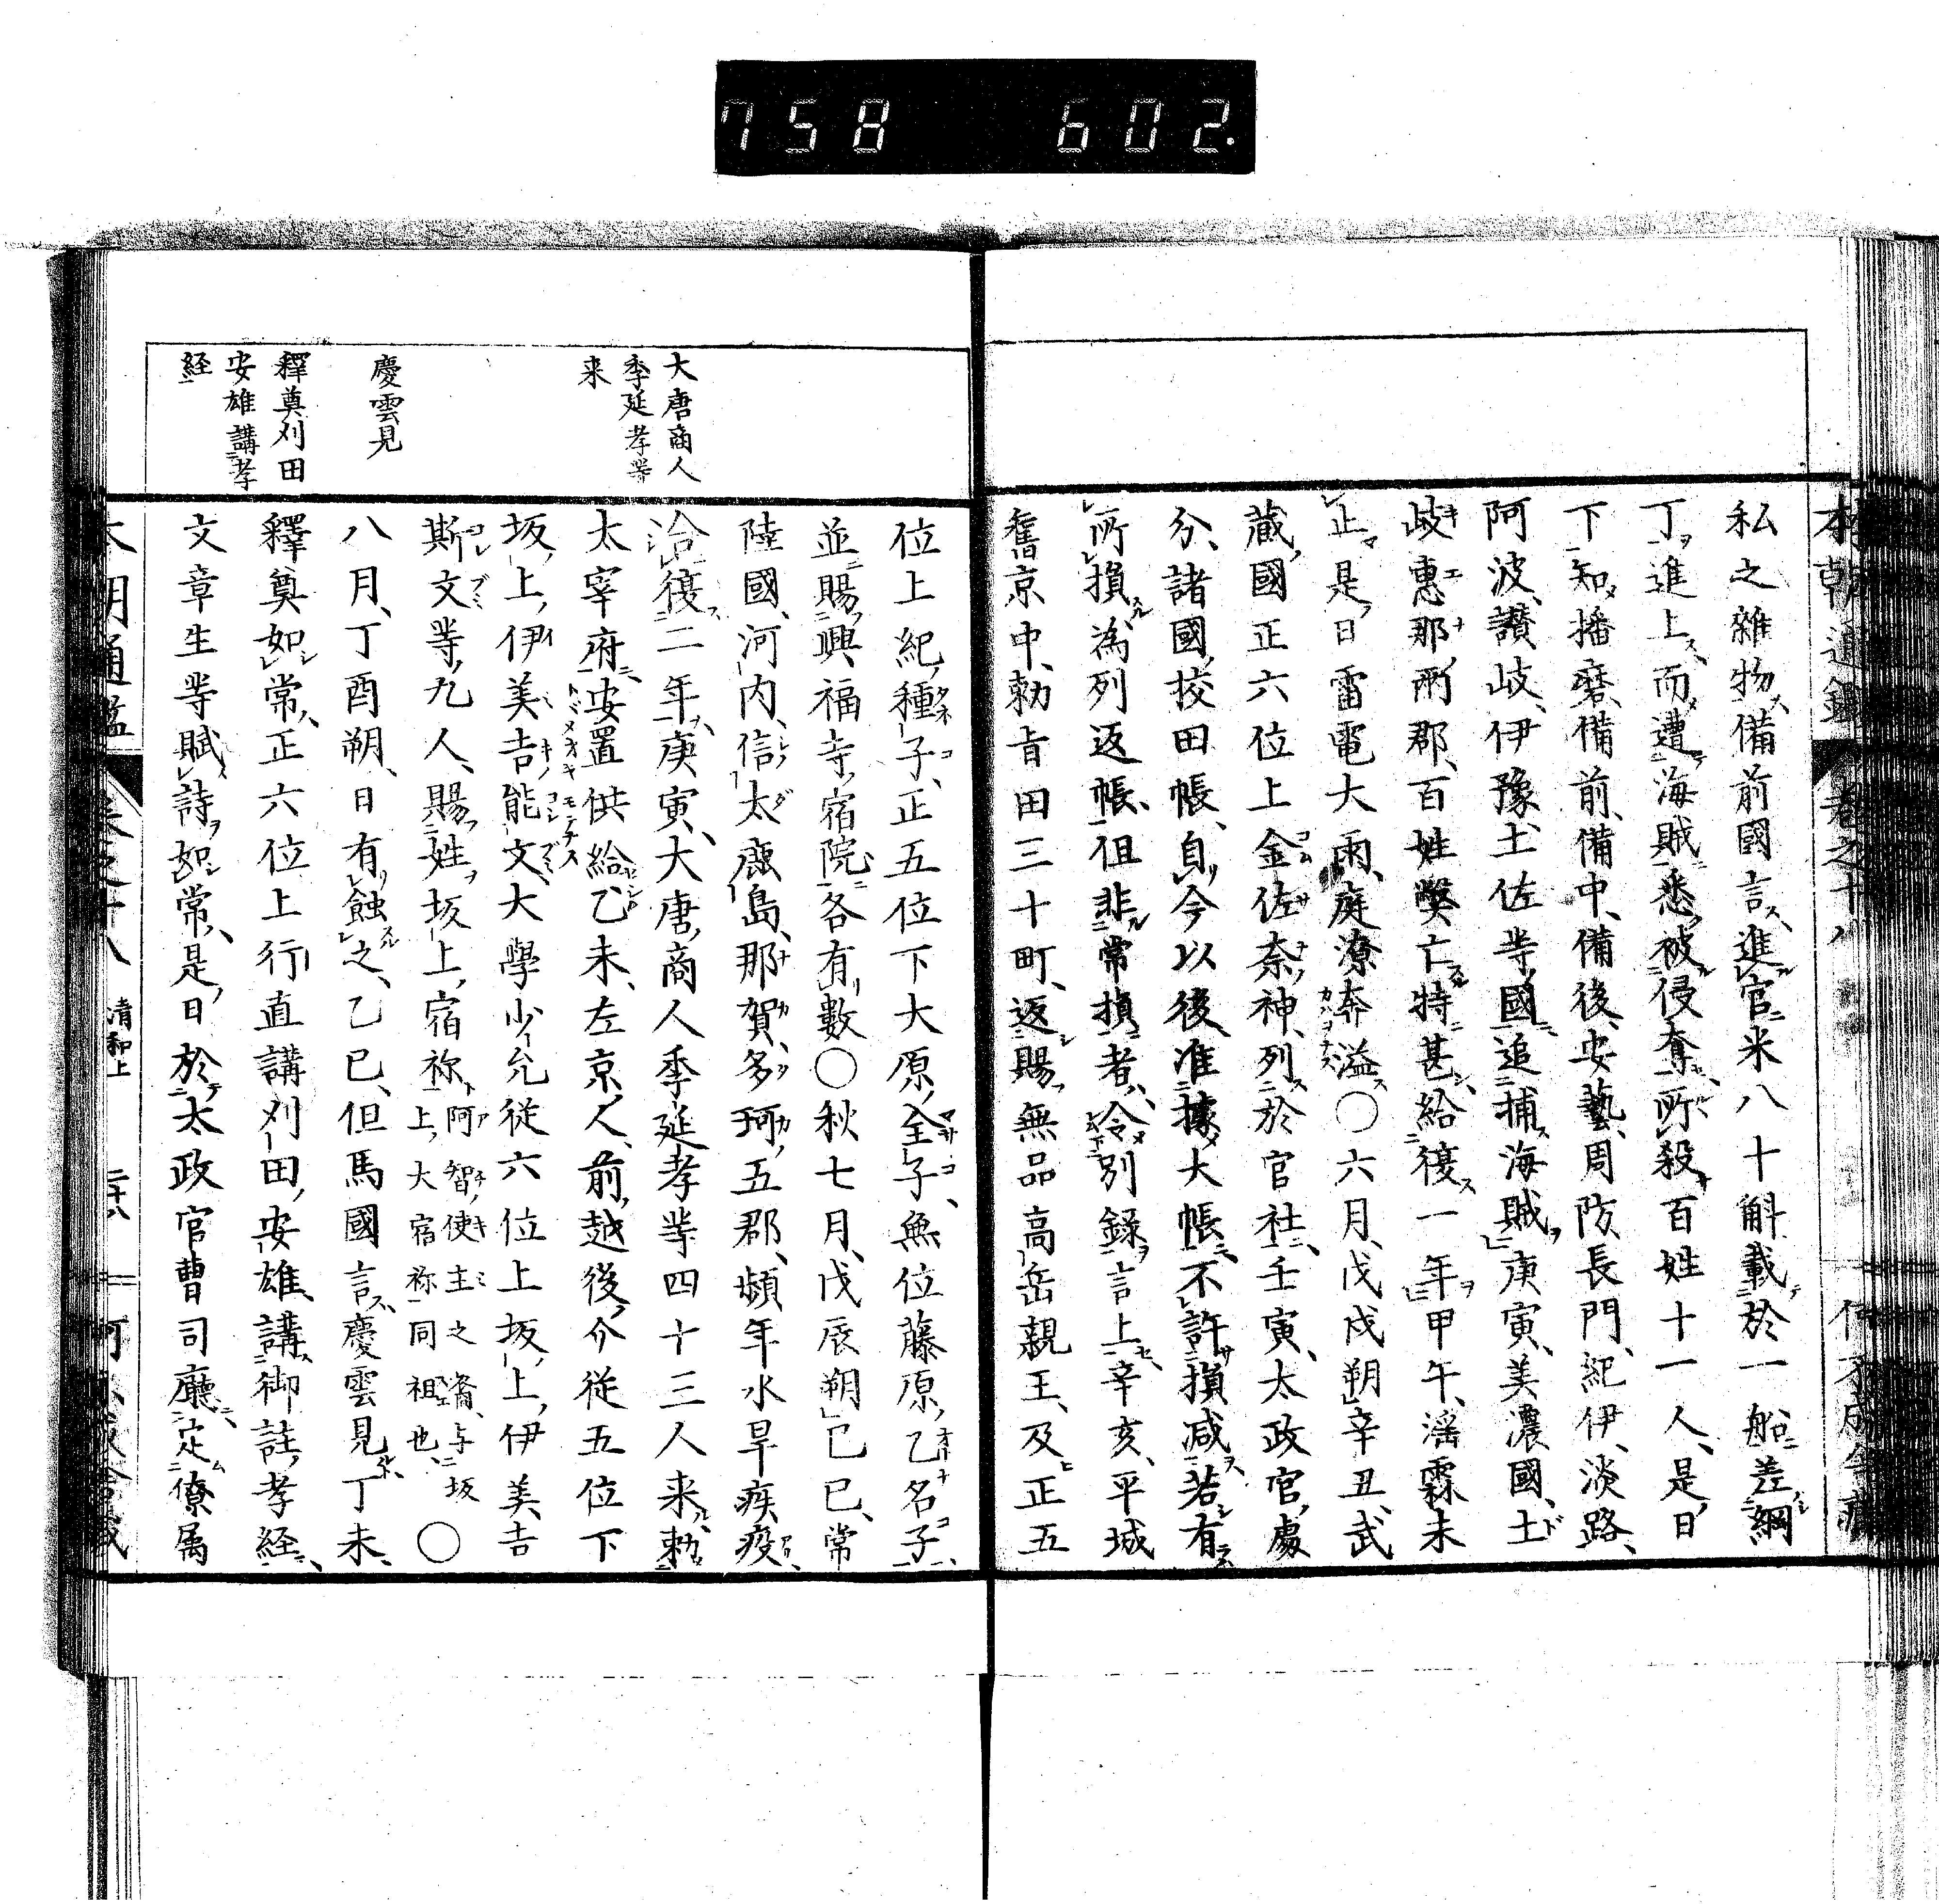 758 602.
私之雜物備前國言進官米八十斛載於一船差綱
丁進上而遭海賊悉被侵奪所殺百姓十一人是日
下知播磨備前備中備後安藝周防長門紀伊淡路
阿波讃岐伊豫土佐等國追捕海賊庚寅美濃國土
岐惠那兩郡百姓弊亡特甚給復一年甲午滛霖未
止是日雷電大雨庭潦奔溢〇六月戊戌朔辛丑武
藏國正六位上金佐奈神列於官社壬寅太政官處
分諸國挍田帳自今以後准據大帳不許損减若有
所損為列返帳但非常損者令別錄言上辛亥平城
舊京中勅旨田三十町返賜無品高岳親王及正五
大唐商人
季延孝等
来
慶雲見
釋奠刈田
安雄講孝
経
位上紀種子正五位下大原全子無位藤原乙名子
並賜興福寺宿院各有數〇秋七月戊辰朔己巳常
陸國河内信太鹿島那賀多珂五郡頻年水旱疾疫
洽復二年庚寅大唐商人季延孝等四十三人来勅
太宰府安置供給乙未左京人前越後介従五位下
坂上伊美吉能文大學少允従六位上坂上伊美吉
斯文等九人賜姓坂上宿祢阿智使主之裔与坂
上大宿祢同祖也〇
八月丁酉朔日有蝕之乙巳但馬國言慶雲見丁未
釋奠如常正六位上行直講刈田安雄講御註孝経
文章生等賦詩如常是日於太政官曹司廳定僚属
清和上